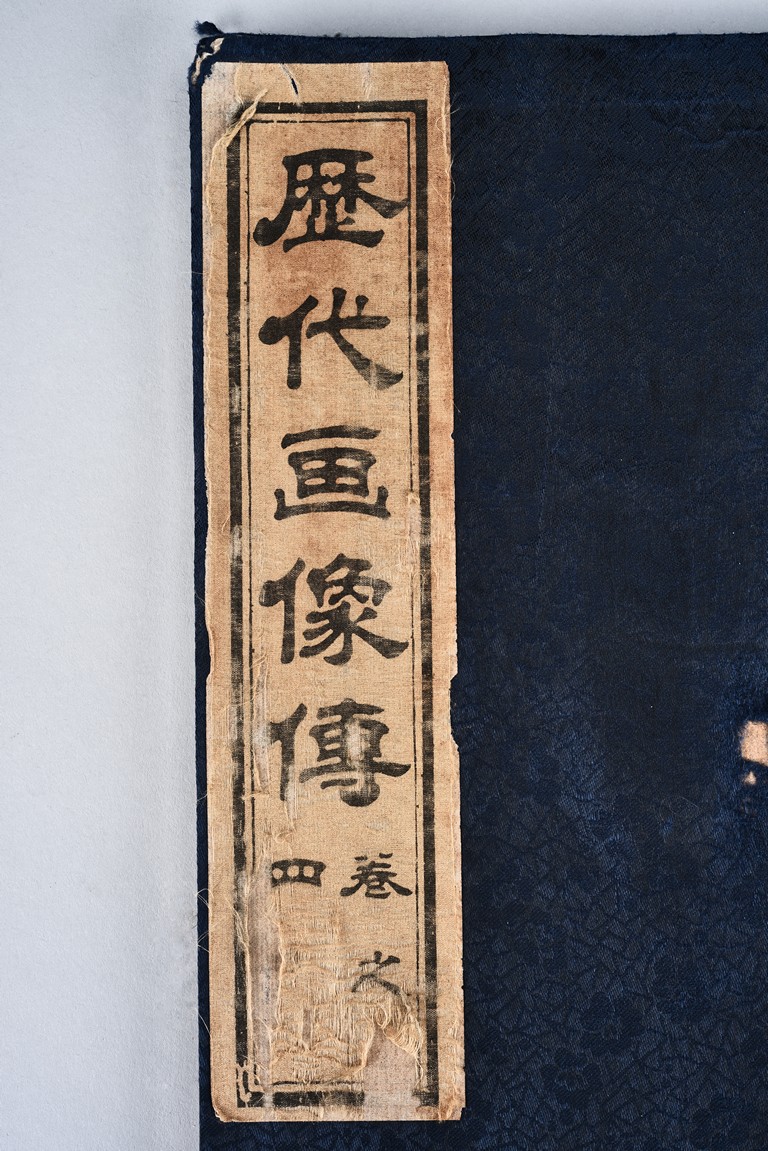 歷代画像傳
卷之
四